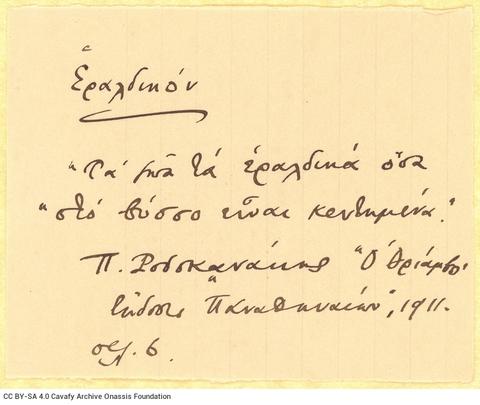 Ἑραλδικόν
"Τά ζῶα τά ἑραλδικά ὅσα
"στό βύσσο εἶναι κεντημένα."
Π. Ροδοκανάκης "Ὁ Θρίαμβο·
ἔκδοσις "Παναθηναίων", 1911.
σελ. 6.
CC BY-SA 4.0 Cavafy Archive Onassis Foundation